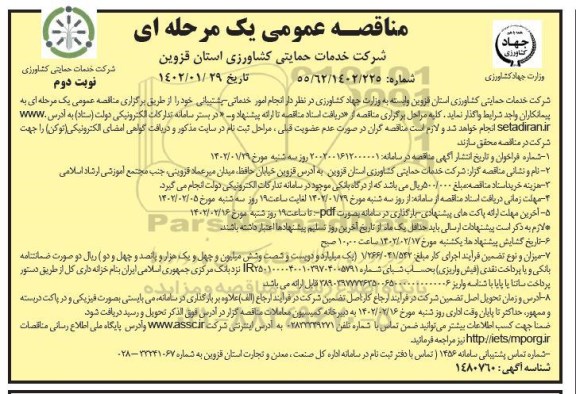 مناقصه عمومی یک مرحله ای
شرکت خدمات حمایتی کشاورزی استان قزوین
شماره: ۵۵/۶۲/۱۴۰۲/۲۲۵ تاریخ ۱۴۰۲/۰۱/۲۹
جهاد
کشاورزی
وزارت جهاد کشاورزی
شرکت خدمات حمایتی کشاورزی
نوبت دوم
شرکت خدمات حمایتی کشاورزی استان قزوین وابسته به وزارت جهاد کشاورزی در نظر دارد انجام امور خدماتی-پشتیبانی خود را از طریق برگزاری مناقصه عمومی یک مرحله ای به
پیمانکاران واجد شرایط واگذار نماید، کلیه مراحل برگزاری مناقصه از «دریافت اسناد مناقصه تا ارائه پیشنهاد و... » در بستر سامانه تدارکات الکترونیکی دولت (ستاد) به آدرس www.
setadiran.ir انجام خواهد شد و لازم است مناقصه گران در صورت عدم عضویت قبلی، مراحل ثبت نام در سایت مذکور و دریافت گواهی امضای الکترونیکی(توکن) را جهت
شرکت در مناقصه محقق سازند.
۱-شماره فراخوان و تاریخ انتشار آگهی مناقصه در سامانه: ۲۰۰۲۰۰۱۶۱۲۰۰۰۰۰۱ روز سه شنبه مورخ ۱۴۰۲/۰۱/۲۹
۲-نام و نشانی مناقصه گزار: شرکت خدمات حمایتی کشاورزی استان قزوین به آدرس قزوین خیابان حافظ، میدان میرعماد قزوینی، جنب مجتمع آموزشی ارشاد اسلامی
۳-هزینه خرید اسناد مناقصه:مبلغ ۵۰۰/۰۰۰ریال می باشد که از درگاه بانکی موجود در سامانه تدارکات الکترونیکی دولت انجام می گیرد.
۴-مهلت زمانی دریافت اسناد مناقصه از سامانه: از روز سه شنبه مورخ ۱۴۰۲/۰۱/۲۹ لغایت ساعت۱۹ روز سه شنبه مورخ ۱۴۰۲/۰۲/۰۵
۵-آخرین مهلت ارائه پاکت های پیشنهادی-بارگذاری در سامانه بصورت pdf-: تا ساعت ۱۹ روز شنبه مورخ ۱۴۰۲/۰۲/۱۶
*لازم به ذکر است پیشنهادات ارسالی باید حداقل یک ماه، از تاریخ آخرین روز تسلیم پیشنهادها اعتبار داشته باشند.
۶-تاریخ گشایش پیشنهاد ها: یکشنبه مورخ ۱۴۰۲/۰۲/۱۷ ساعت ۱۰:۰۰ صبح
۷-میزان و نوع تضمین فرآیند اجرای کار مبلغ: ۱/۲۶۶/۰۴۱/۵۴۲ (یک میلیارد و دویست و شصت وشش میلیون و چهل و یک هزار و پانصد و چهل و دو) ریال دو صورت ضمانتنامه
بانکی و یا پرداخت نقدی (فیش واریزی) بحساب شبای شماره نزد بانک مرکزی جمهوری اسلامی ایران بنام خزانه داری کل از طریق دستور
پرداخت ساتنا یا پایا با شناسه واریز قابل ارائه می باشد.
۸-زمان و زمان تحویل اصل تضمین شرکت در فرآیند ارجاع کار:اصل تضمین شرکت در فرآیند ارجاع (الف)علاوه بر بارگذاری در سامانه، می بایستی بصورت فیزیکی و در پاکت دربسته
و ممهور، حداکثر تا پایان وقت اداری روز شنبه مورخ ۱۴۰۲/۰۲/۱۶ به دبیرخانه کمیسیون معاملات مناقصه گزار در آدرس فوق الذکر تحویل و رسید دریافت شود.
ضمنا جهت کسب اطلاعات بیشتر می‌توانید ضمن تماس با شماره تلفن ۰۲۸۳۳۳۳۹۲۷۱ به آدرس اینترنتی شرکت www.assc.ir وآدرس پایگاه ملی اطلاع رسانی مناقصات
http://iets/mporg.ir نیز مراجعه فرمائید.
-شماره تماس پشتیبانی سامانه ۱۴۵۶ ( تماس با دفتر ثبت نام در سامانه اداره کل صنعت ، معدن و تجارت استان قزوین به شماره ۳۳۲۴۱۰۶۷-۰۲۸
شناسه آگهی: ۱۴۸۰۷۶۰